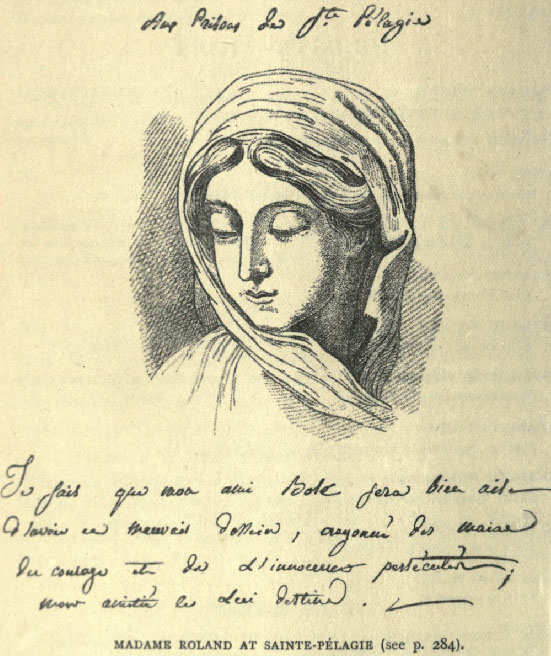 Aux Prisons de Ste Pélagie
Je sais que mon ami Bosc sera bien aise
d'avoir ce mauvais dessein, crayonné des mains
du courage et de l'innocence persécutée ;
mon amitié le lui destine.
MADAME ROLAND AT SAINTE-PÉLAGIE (see p. 284).